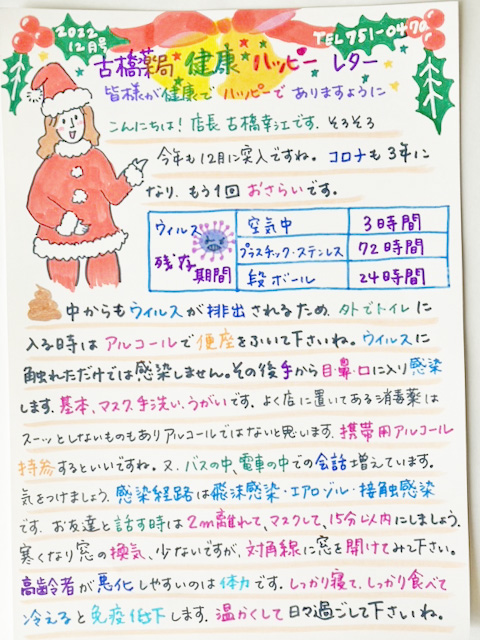 2022
12月号
TEL 751-0470
古橋薬局 健康 ハッピー レター
皆様が健康で ハッピーで ありますように
こんにちは! 店長 古橋幸江です. そろそろ
今年も12月に突入ですね。コロナも3年に
なり、もう1回 おさらいです。
ウィルス
残存
期間
空気中 3時間
プラスチック・ステンレス 72時間
段ボール 24時間
中からもウイルスが排出されるため、外でトイレに
入る時は アルコールで便座をふいて下さいね。ウィルスに
触れただけでは感染しません。その後手から目・鼻・口に入り感染
します. 基本、マスク、手洗い、うがいです. よく店に置いてある消毒薬は
スーッとしないものもありアルコールではないと思います. 携帯用アルコール
持参するといいですね。又、バスの中、電車の中での会話増えています。
気をつけましょう. 感染経路は飛沫感染・エアロゾル・接触感染
です. お友達と話す時は2m離れて、マスクして、15分以内にしましょう.
寒くなり窓の換気、少ないですが、対角線に窓を開けてみて下さい。
高齢者が悪化しやすいのは体力です. しっかり寝て、しっかり食べて
冷えると免疫低下します. 温かくして日々過ごして下さいね。